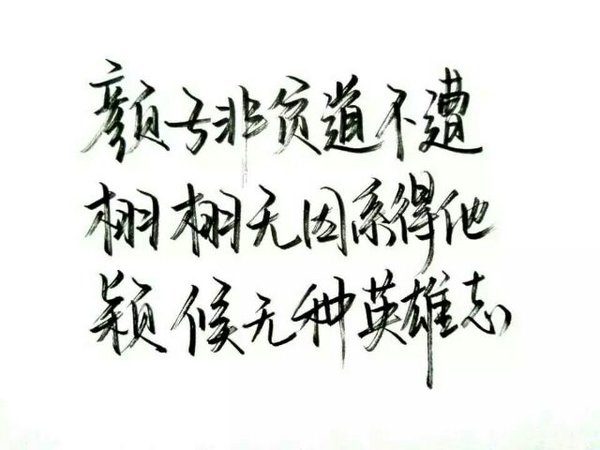 颜子非贫道不遭
栩栩无因系得他
颖候无种英雄志